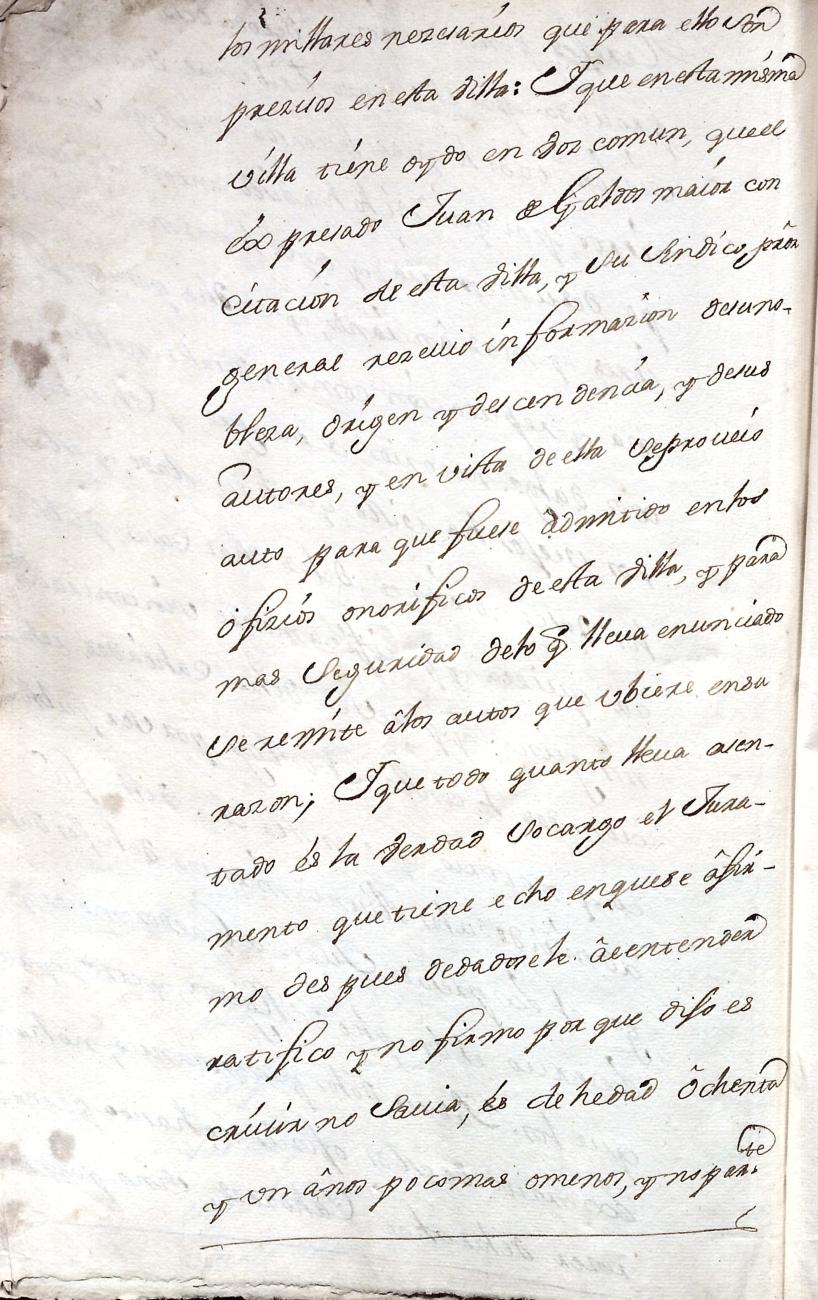 los millares nezesarios que para ello son
prezisos en esta villa: Y que en esta misma
villa tiene oydo en voz comun, que el
expresado Juan de Galdos maior con
citación de esta villa, y su sindico prôr
general rezeuio informazion desu no-
bleza, origen y descendencia, y desus
autores, y en vista de ella se proueió
auto para que fuese âdmitido en los
ofizios onorificos de esta villa, y para
mas seguridad delo q̃ lleua enunciado
se remite âlos autos que vbiere ensa
razon; Y que todo quanto lleua asen-
tado és la verdad so cargo el Jura-
mento que tiene echo en que se âfir-
mo despues de dadosele âeentender
ratifico y no firmo por que dijo es
criuir no sauia, és de hedad ôchenta
y un âños poco mas omenos, y no parte